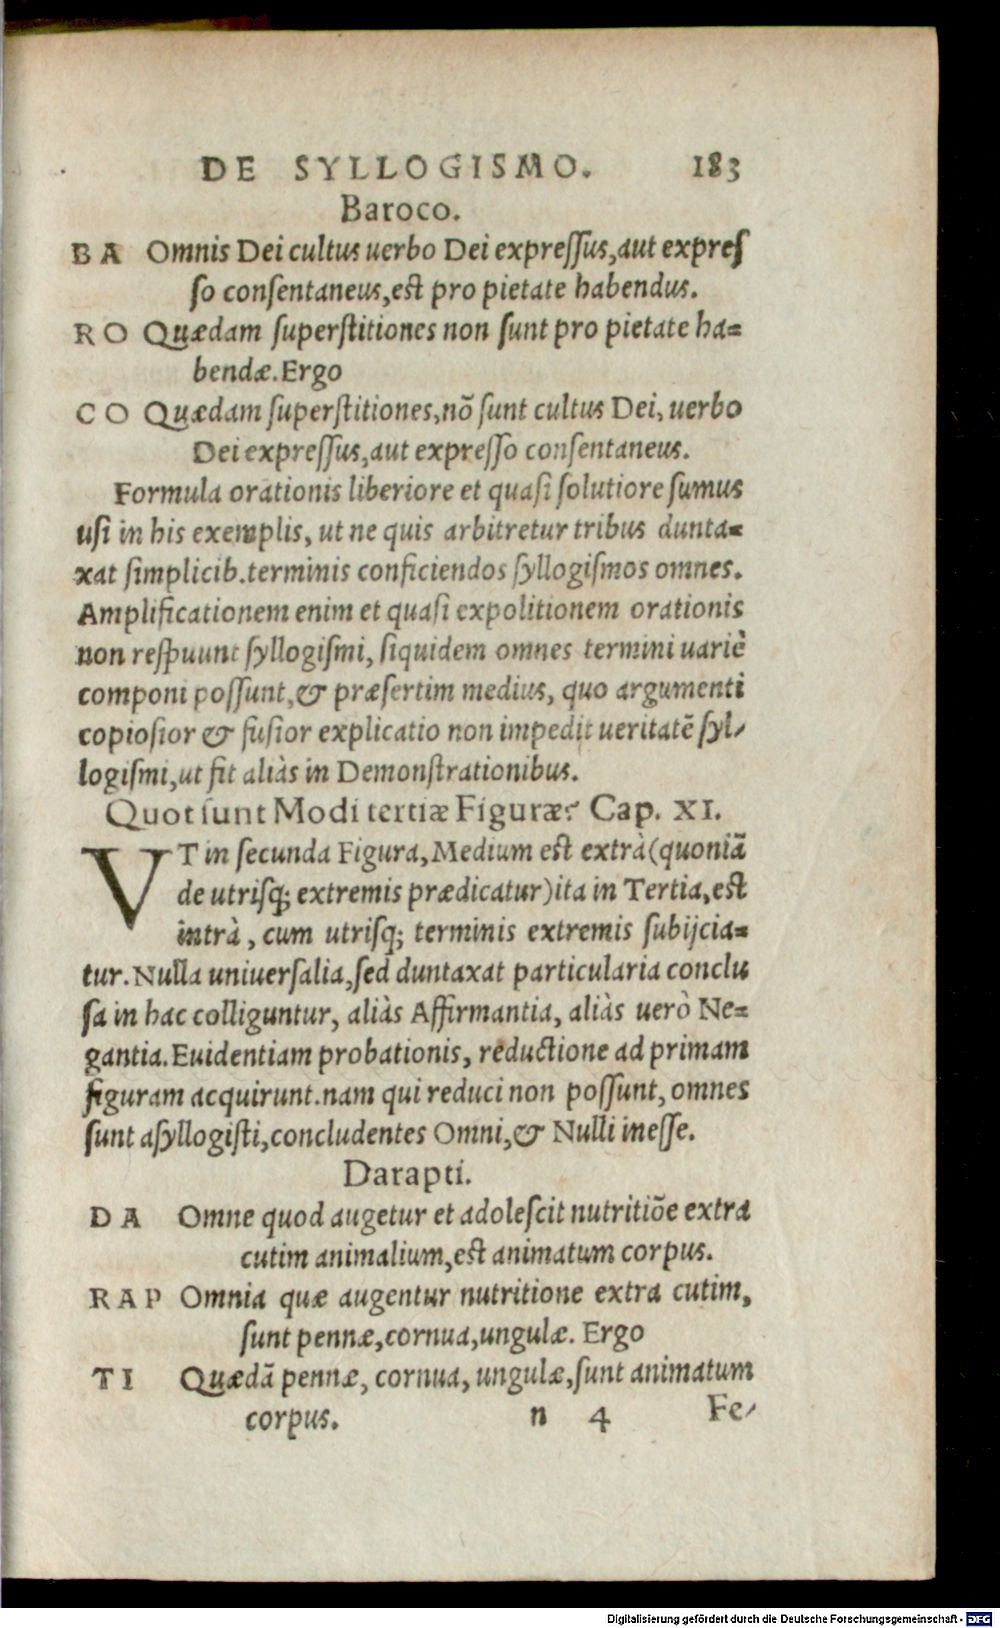 DE SYLLOGISMO. 183
Baroco.
BA Omnis Dei cultus uerbo Dei expreſſus, aut expreſ
ſo conſentaneus, est pro pietate habendus.
RO Quædam ſuperſtitiones non ſunt pro pietate ha=
bendæ. Ergo
CO Quædam ſuperſtitiones, nō ſunt cultus Dei, uerbo
Dei expreſſus, aut expreſſo conſentaneus.
Formula orationis liberiore et quaſi ſolutiore ſumus
uſi in his exemplis, ut ne quis arbitretur tribus dunta=
xat ſimplicib. terminis conficiendos ſyllogiſmos omnes.
Amplificationem enim et quaſi expolitionem orationis
non reſpuunt ſyllogiſmi, ſiquidem omnes termini uariè
componi poſſunt, & præſertim medius, quo argumenti
copioſior & fuſior explicatio non impedit ueritatē ſyl/
logiſmi, ut fit aliàs in Demonſtrationibus.
Quot ſunt Modi tertiæ Figuræ? Cap. XI.
VT in ſecunda Figura, Medium est extrà (quoniā
de utriſq; extremis prædicatur) ita in Tertia, est
intrà, cum utriſq; terminis extremis ſubijcia=
tur. Nulla uniuerſalia, ſed duntaxat particularia conclu
ſa in hac colliguntur, aliàs Affirmantia, aliàs uerò Ne=
gantia. Euidentiam probationis, reductione ad primam
figuram acquirunt. nam qui reduci non poſſunt, omnes
ſunt aſyllogiſti, concludentes Omni, & Nulli ineſſe.
Darapti.
DA Omne quod augetur et adoleſcit nutritiōe extra
cutim animalium, est animatum corpus.
RAP Omnia quæ augentur nutritione extra cutim,
ſunt pennæ, cornua, ungulæ. Ergo
TI Quædā pennæ, cornua, ungulæ, ſunt animatum
corpus. n 4 Fe/
Digitalisierung gefördert durch die Deutsche Forschungsgemeinschaft - DFG